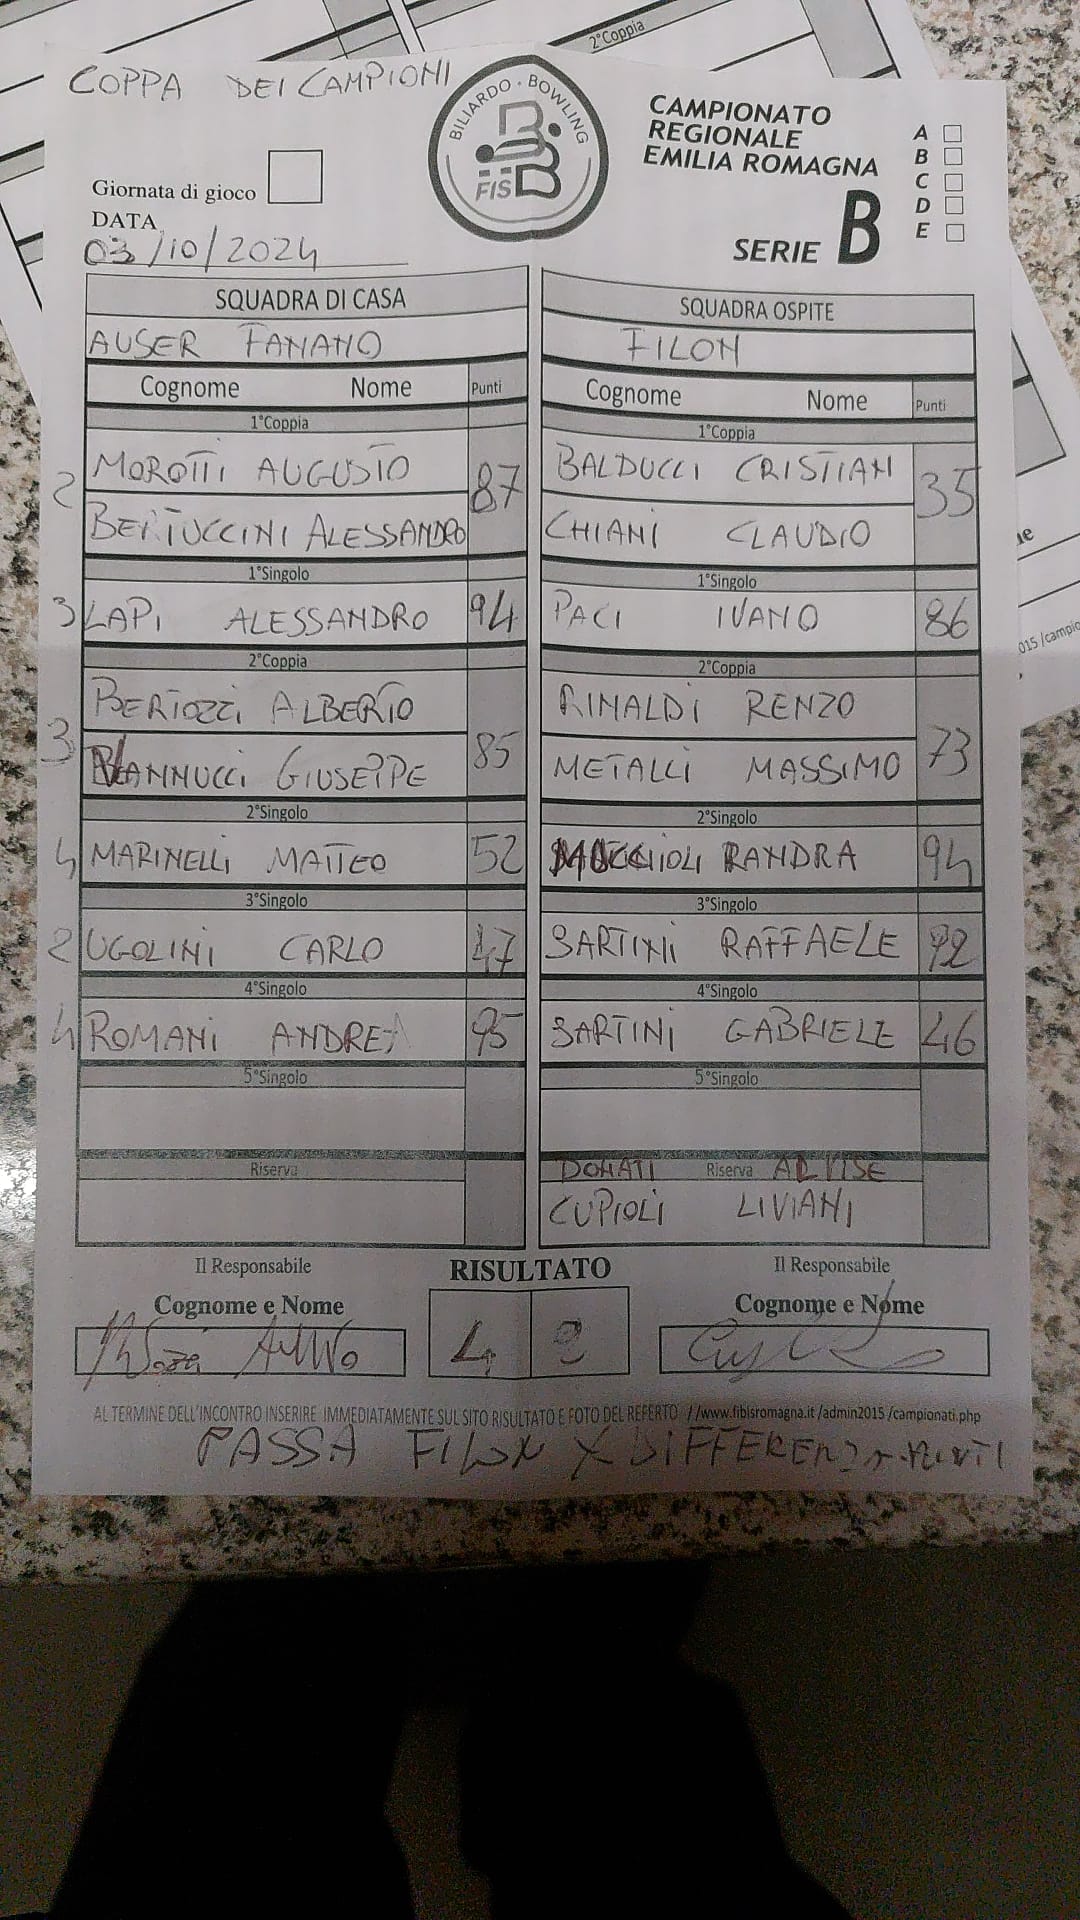 2°Coppia
COPPA DEI CAMPIONI
BILIARDO · BOWLING
FISBB
CAMPIONATO
REGIONALE
EMILIA ROMAGNA
SERIE B
A
B
C
D
E
Giornata di gioco
DATA
03/10/2024
SQUADRA DI CASA SQUADRA OSPITE
AUSER FANANO FILON
Cognome Nome Punti Cognome Nome Punti
1°Coppia 1°Coppia
2 MOROTTI AUGUSTO 87 BALDUCCI CRISTIAN 35
BERTUCCINI ALESSANDRO CHIANI CLAUDIO
1°Singolo 1°Singolo
3 LAPI ALESSANDRO 94 PACI IVANO 86
2°Coppia 2°Coppia
BERTOZZI ALBERTO RINALDI RENZO
3 VANNUCCI GIUSEPPE 85 METALLI MASSIMO 73
2°Singolo 2°Singolo
4 MARINELLI MATTEO 52 MUCCIOLI RANDRA 94
3°Singolo 3°Singolo
2 UGOLINI CARLO 47 SARTINI RAFFAELE 92
4°Singolo 4°Singolo
4 ROMANI ANDREA 95 SARTINI GABRIELE 46
5°Singolo 5°Singolo
Riserva DONATI Riserva ALVISE
CUPIOLI LIVIANI
Il Responsabile RISULTATO Il Responsabile
Cognome e Nome Cognome e Nome
4 2
AL TERMINE DELL'INCONTRO INSERIRE IMMEDIATAMENTE SUL SITO RISULTATO E FOTO DEL REFERTO //www.fibisromagna.it /admin2015 /campionati.php
PASSA FILON X DIFFERENZA PUNTI
015 /campio